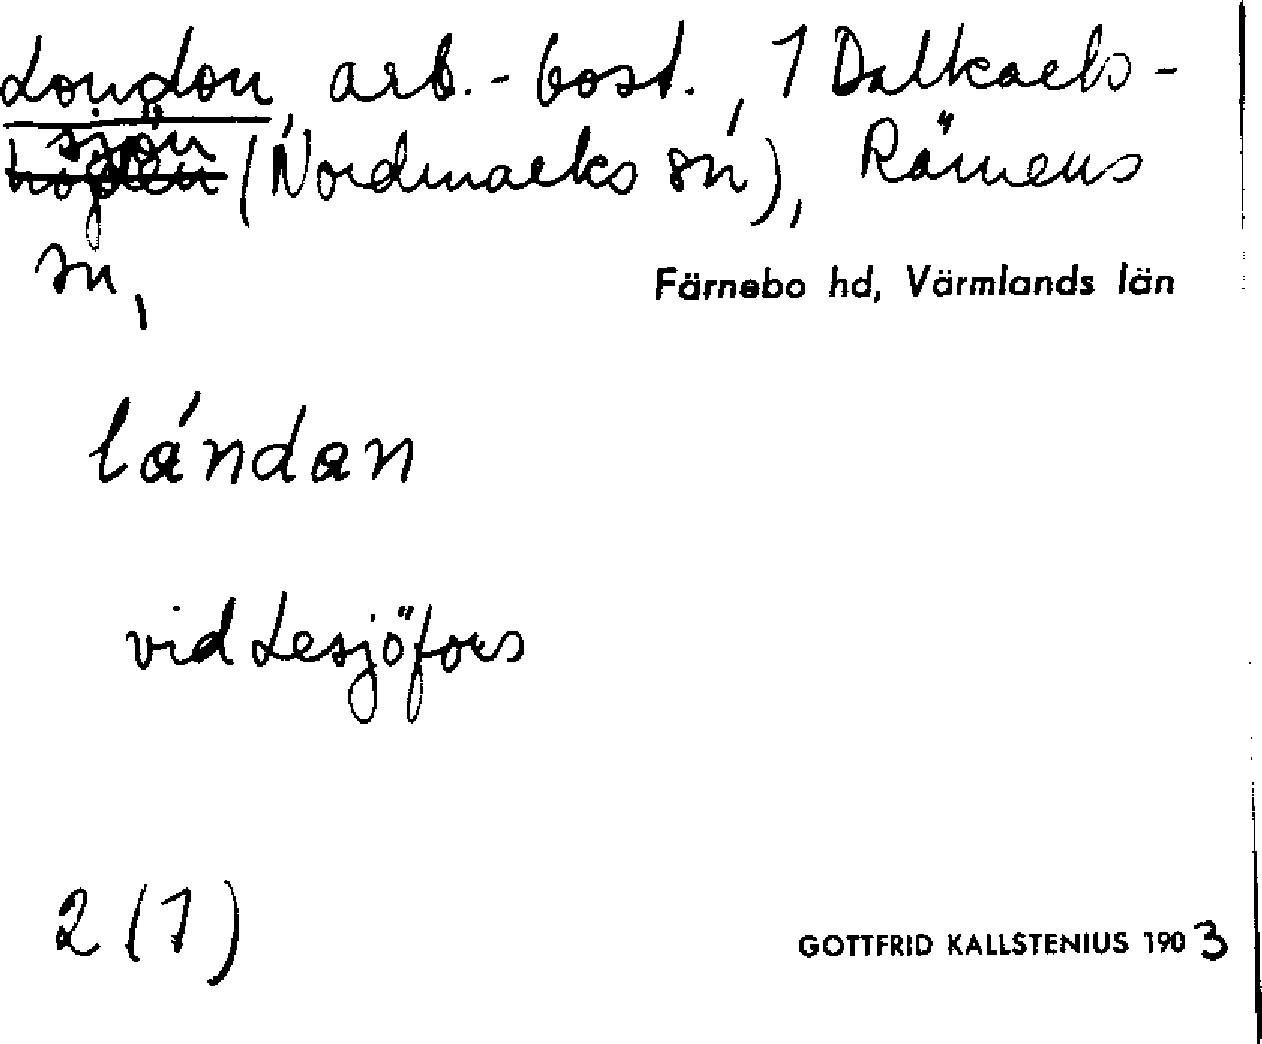 London, arb.-bost., 1 Dalkarls-
sjön
höjden (Nordmarks sn), Rämens
sn,
Färnebo hd, Värmlands län
lándan
vid Lesjöfors
2 (1)
GOTTFRID KALLSTENIUS 1903